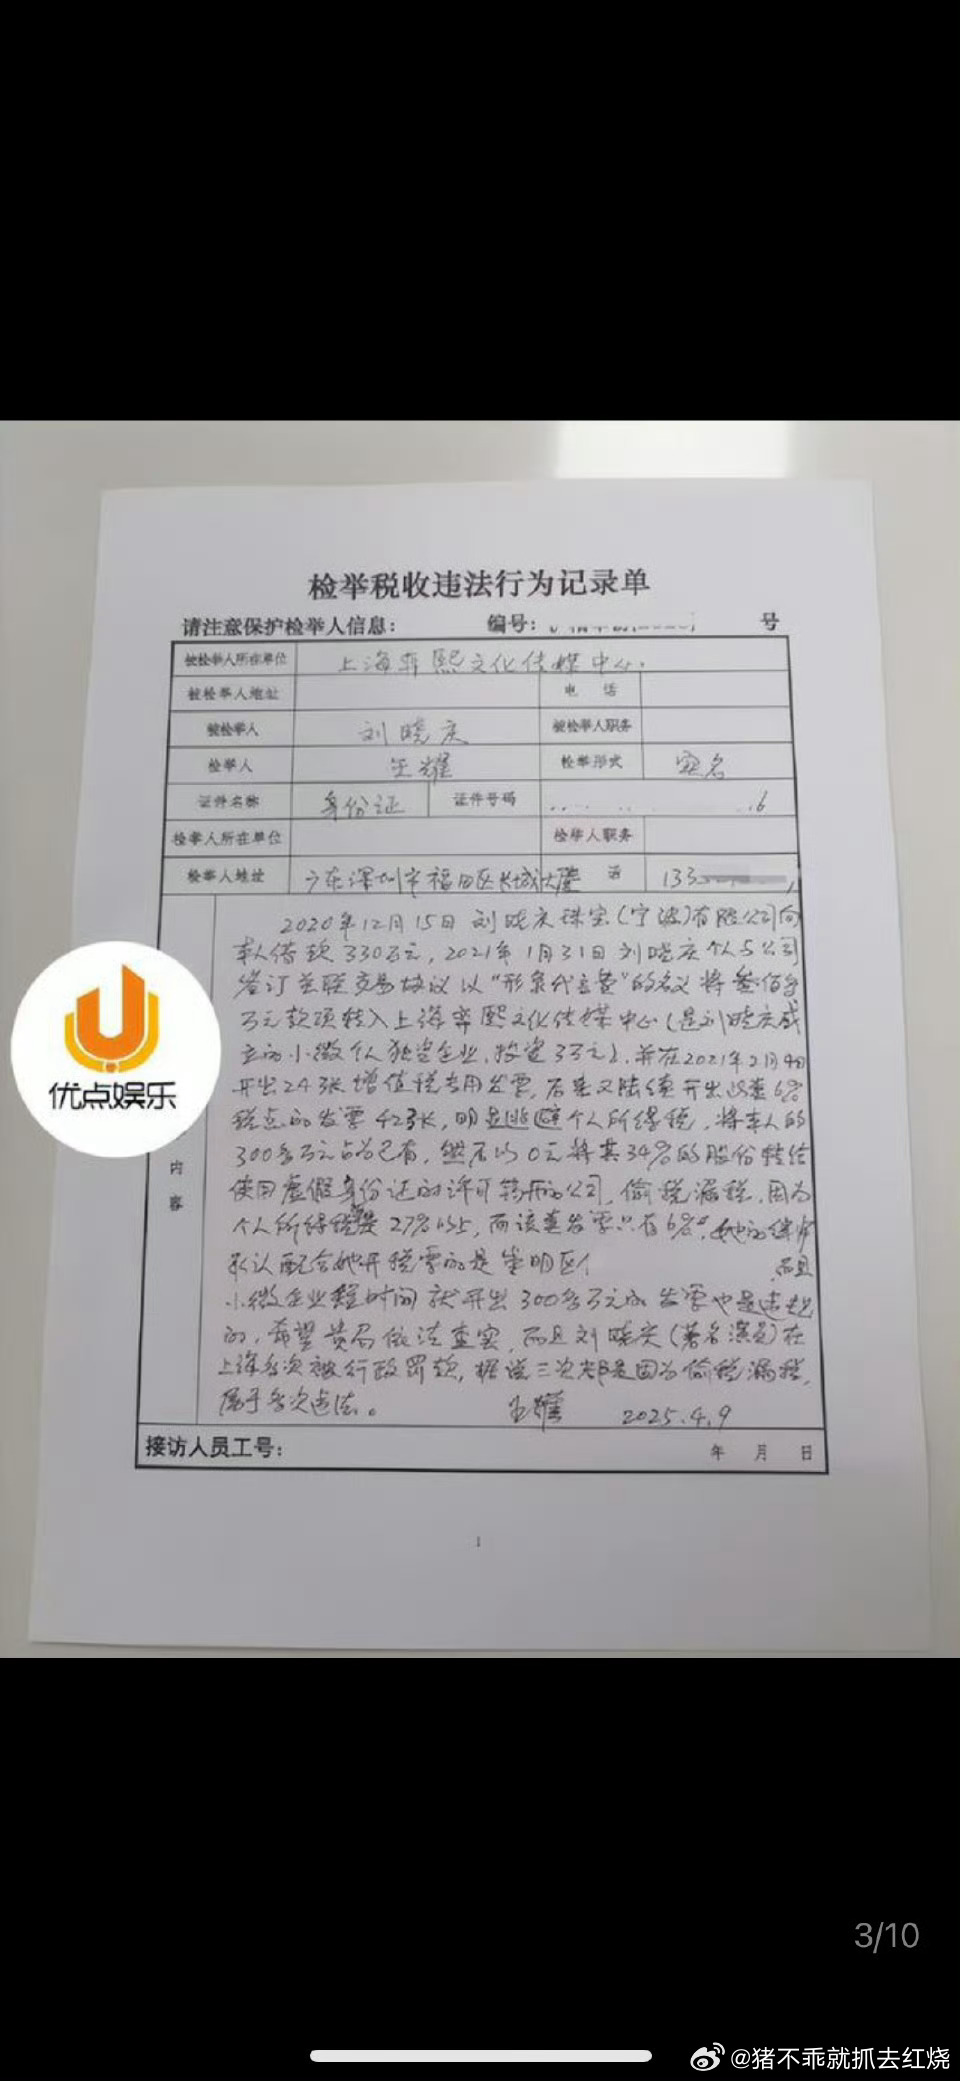 检举税收违法行为记录单
请注意保护检举人信息： 编号： 号
被检举人所在单位 上海弈熙文化传媒中心.
被检举人地址 电 话
被检举人 刘晓庆 被检举人职务
检举人 王耀 检举形式 实名
证件名称 身份证 证件号码 6
检举人所在单位 检举人职务
检举人地址 广东深圳市福田区长城大厦 话 133
2020年12月15日刘晓庆珠宝(宁波)有限公司向
本人借款330万元，2021年1月31日刘晓庆个人与公司
签订关联交易协议以“形象代言费”的名义将叁佰多
万元款项转入上海弈熙文化传媒中心(是刘晓庆成
立的小微个人独资企业，投资3万元)，并在2021年2月4日
开出24张增值税专用发票，后来又陆续开出以普6%
税点的发票42张，明显逃避个人所得税，将本人的
300多万元占为己有，然后以0元将其34%的股份转给
使用虚假身份证的许可 的公司，偷税漏税，因为
个人所得税是27%以上，而该普发票只有6%，她的律师
承认配合她开税票的是崇明区 而且
小微企业短时间就开出300多万元的发票也是违规
的，希望贵局依法查实，而且刘晓庆(著名演员)在
上海多次被行政罚款，据说三次都是因为偷税漏税，
属于多次违法。 王耀 2025.4.9
内
容
接访人员工号： 年 月 日
1
优点娱乐
3/10
@猪不乖就抓去红烧